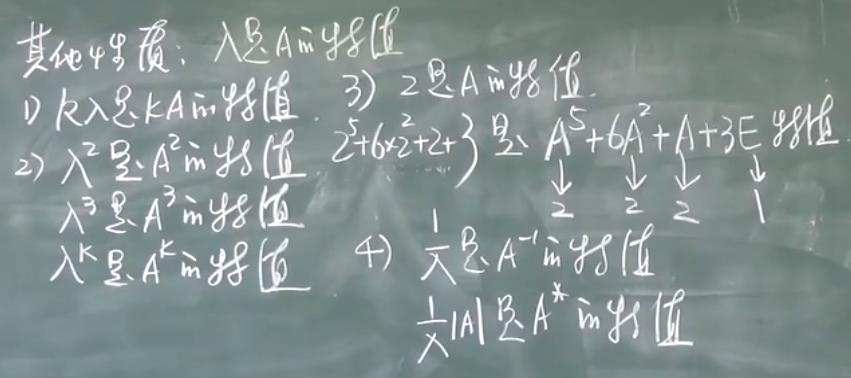 其他性质: λ是A的特值
1) kλ是kA的特值.
2) λ²是A²的特值.
λ³是A³的特值
λᴷ是Aᴷ的特值
3) 2是A的特值.
2⁵+6×2²+2+3 是 A⁵+6A²+A+3E 特值.
↓ ↓ ↓ ↓
2 2 2 1
4) 1/λ 是A⁻¹的特值
1/λ|A|是A*的特值